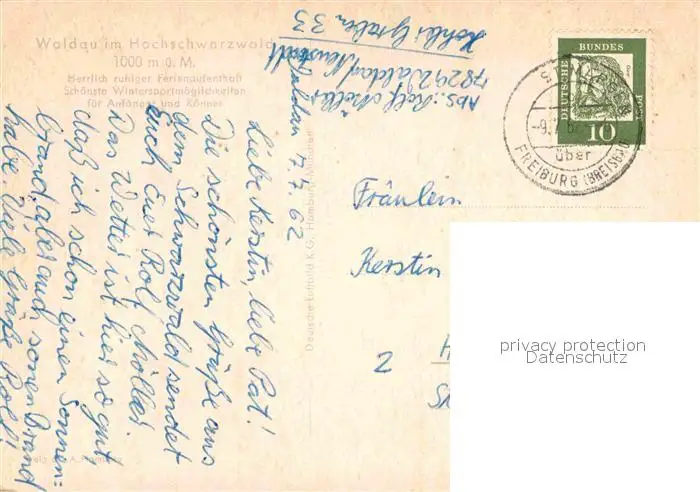 Waldau im Hochschwarzwald
1000 m ü. M.
Herrlich ruhiger Ferienaufenthalt
Schönste Wintersportmöglichkeiten
für Anfänger und Könner
Abs.: Rolf Möller
7829 Waldau/Neustadt
33
Waldau 7.7.62
Liebe Kerstin, liebe Pat!
Die schönsten Grüße aus
dem Schwarzwald sendet
Euch Euer Rolf Möller
Das Wetter ist hier so gut
daß ich schon einen Sonnen=
brand aber auch sonen Brand
habe. Viele Grüße Rolf!
Deutsche Luftbild K.G., Hamburg
DEUTSCHE BUNDES POST
10
-9.7.62
über
FREIBURG (BREISGAU)
Fräulein
Kerstin
2 H
privacy protection
Datenschutz